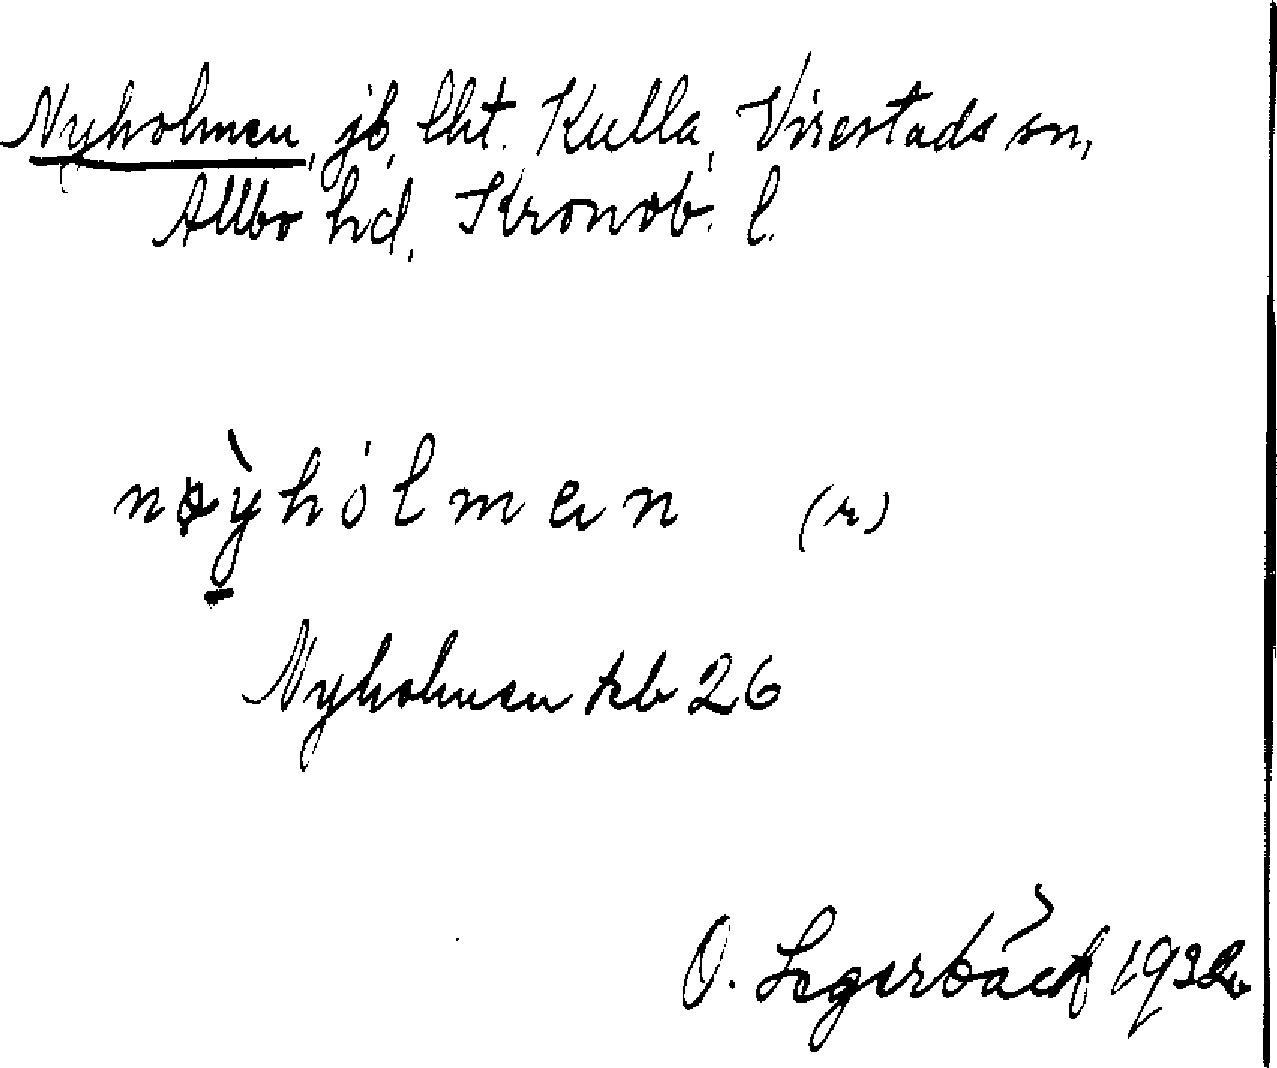 Nyholmen, jb, lht. Kulla, Virestads sn,
Allbo hd, Kronob. l.
nøỳhólmen (r)
Nyholmen kb 26
O. Legerbäck 1932.